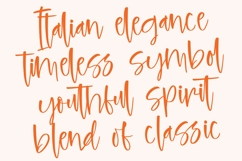 Italian elegance
timeless symbol
youthful spirit
blend of classic